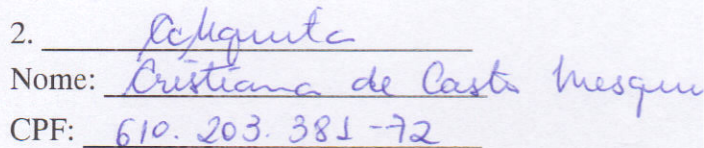 2.
Nome: Cristiana de Casto Mesqui
CPF: 610.203.381-72